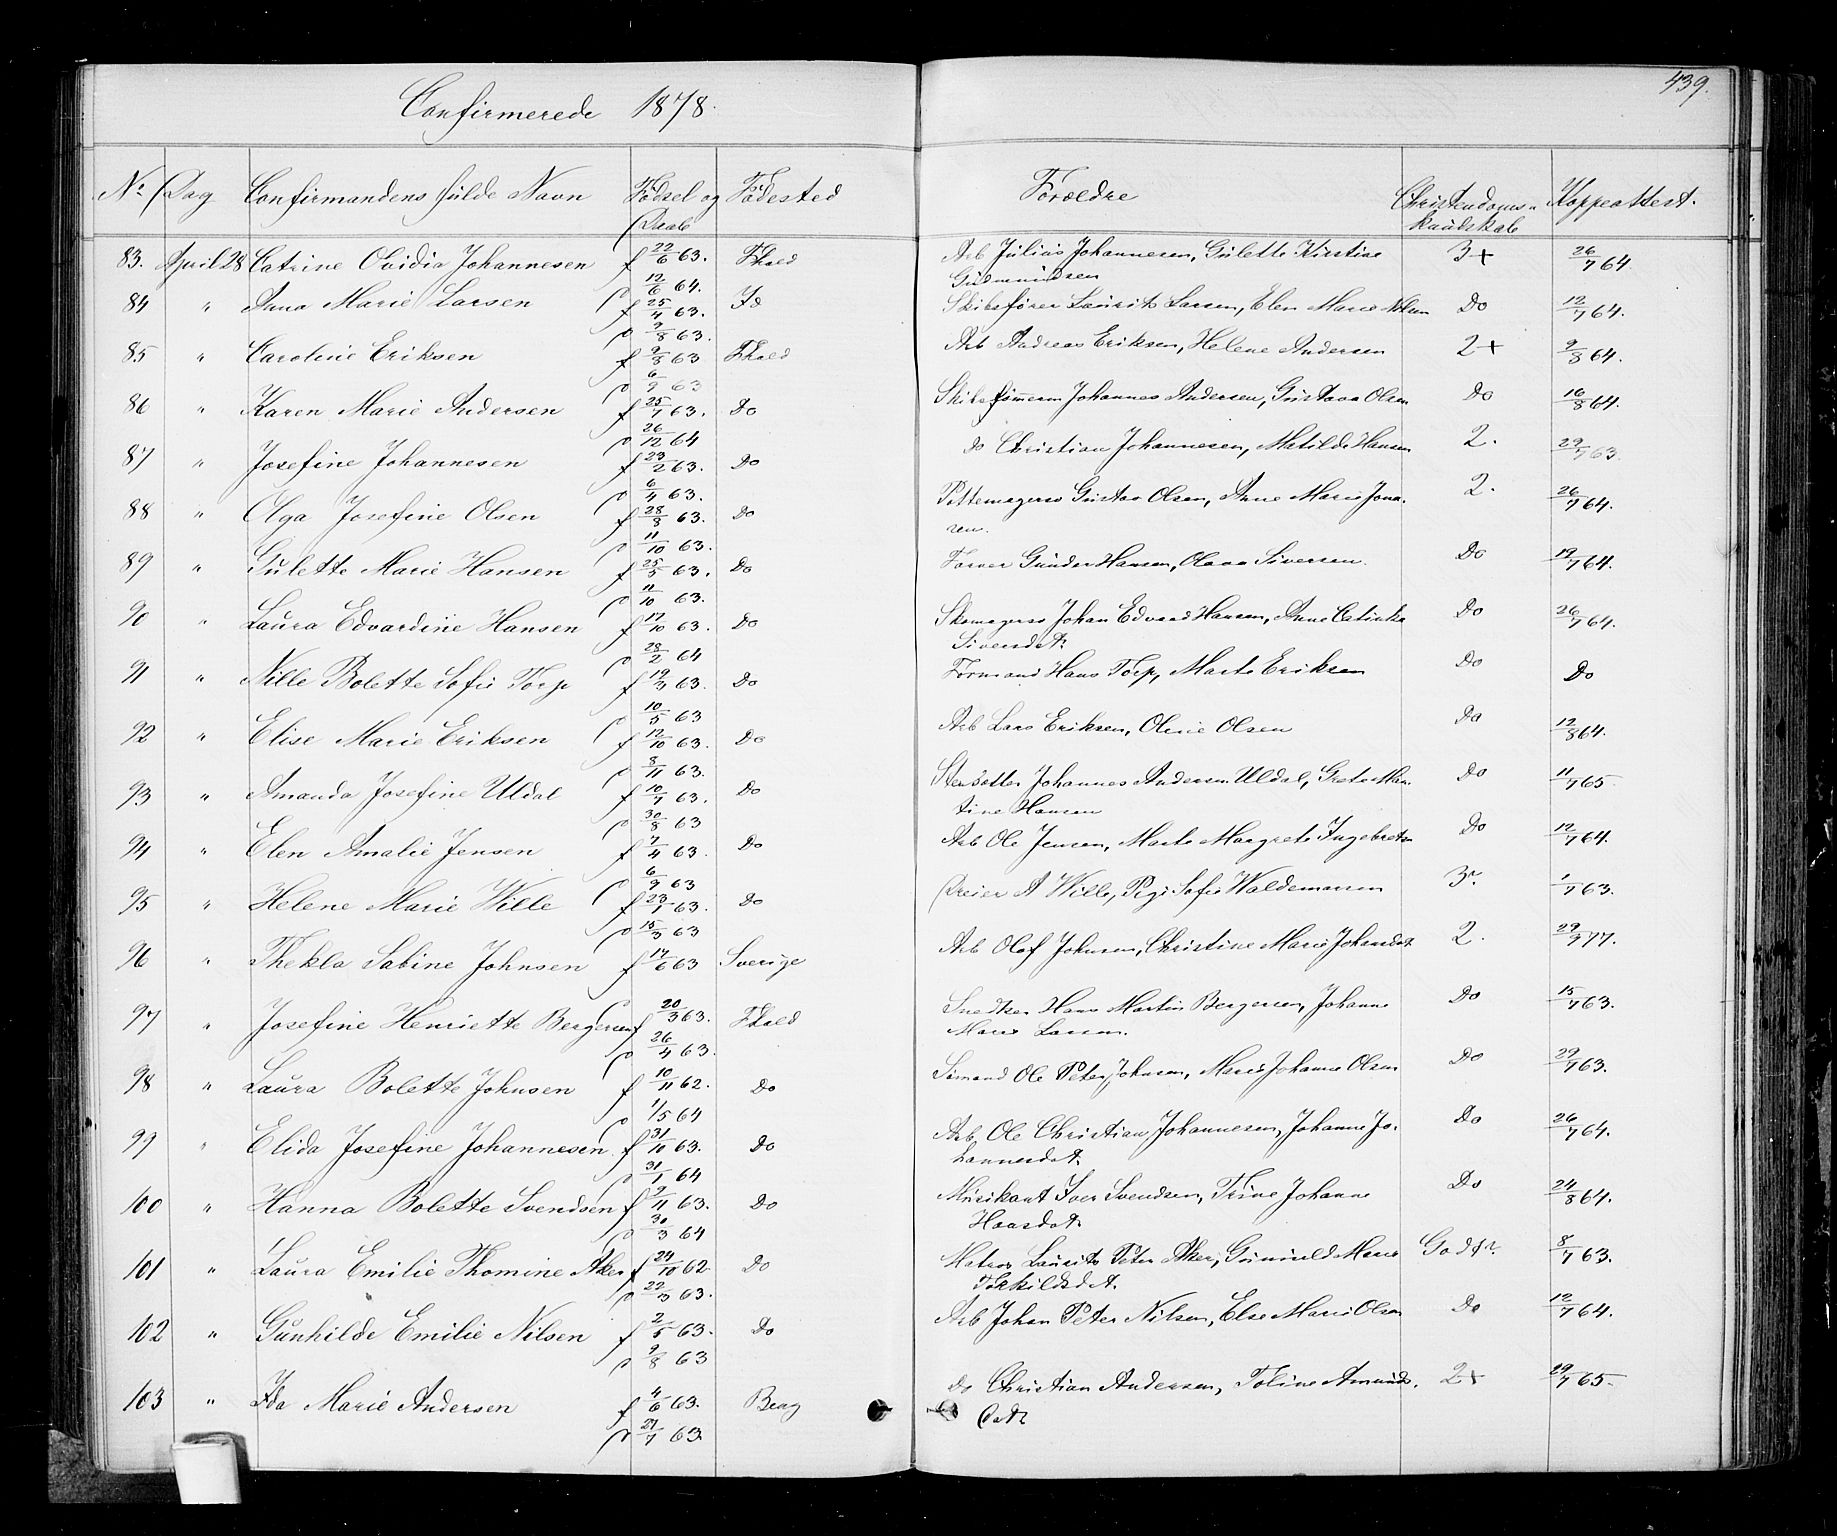 439.
Confirmerede 1878.
No Dag Confirmandens fulde Navn Fødsel og Daab Fødested Forældre Christendoms-kundskab Koppeattest.
83. April 28 Catrine Ovidia Johannesen f 22/6 63. Fhald Arb Julius Johannesen, Gulette Kirstine 3+ 26/7 64.
D 12/6 64. Gudmundsen
84 " Anna Marie Larsen f 25/4 63. Do Skibsfører Laurits Larsen, Elen Marie Do 12/7 64.
D 9/8 63.
85 " Caroline Eriksen f 9/8 63 Fhald Arb Andreas Eriksen, Helene Andersen 2+ 9/8 64.
D 6/9 63
86 " Karen Marie Andersen f 25/7 63. Do Skibstømerm Johannes Andersen, Gustava Olsen Do 16/8 64.
D 26/12 64
87 " Josefine Johannesen f 23/2 63. Do do Christian Johannesen, Matilde Hansen 2. 29/7 63.
D 6/4 63.
88 " Olga Josefine Olsen f 28/8 63. Do Pottemagersv Gustav Olsen, Anne Marie Jona- 2. 26/7 64.
D 11/10 63. sen.
89 " Gulette Marie Hansen f 25/5 63. Do Farver Gunder Hansen, Olava Siversen. Do 19/7 64.
D 11/10 63.
90 " Laura Edvardine Hansen f 17/10 63. Do Skomagersv Johan Edvard Hansen, Anne Catinka Do 26/7 64.
D 28/2 64 Siversdt.
91 " Nille Bolette Sofie Torp f 19/4 63. Do Formand Hans Torp, Marte Eriksen Do Do
D 10/5 63
92 " Elise Marie Eriksen f 12/10 63. Do Arb Lars Eriksen, Oline Olsen Do 12/8 64.
D 8/11 63.
93 " Amanda Josefine Uldal f 10/7 63. Do Stensætter Johannes Andersen Uldal, Grete Do 11/7 65.
D 30/8 63 tine Hansen
94 " Elen Amalie Jensen f 7/4 63. Do Arb Ole Jensen, Marte Margrete Ingebretsen Do 12/7 64.
D 6/9 63
95 " Helene Marie Wille f 23/1 63. Do Dreier A Wille, Pige Sofie Waldemarsen 3. 1/7 63.
D 15/3 63
96 " Thekla Sabine Johnsen f 17/6 63 Sverige Arb Olaf Johnsen, Christine Marie Johnsdt 2. 29/9 77.
97 " Josefine Henriette Bergersen f 20/3 63. Fhald Snedker Hans Martin Bergersen, Johanne Do 15/7 63.
D 26/4 63. Marie Larsen.
98 " Laura Bolette Johnsen f 10/11 62. Do Sømand Ole Peter Johnsen, Marie Johanne Olsen Do 29/7 63.
D 1/5 64
99 " Elida Josefine Johannesen f 31/10 63. Do Arb Ole Christian Johannesen, Johanne Jo- Do 26/7 64.
D 31/1 64 hannesdt.
100 " Hanna Bolette Svendsen f 9/11 63. Do Musikant Iver Svendsen, Trine Johanne Do 24/8 64.
D 30/3 64 Haasdt.
101 " Laura Emilie Thomine Aker f 24/10 62 Do Matros Laurits Peter Aker, Gunnild Marie 8/7 63.
D 22/3 63. Torkildsdt.
102 " Gunhilde Emilie Nilsen f 2/5 63. Do Arb Johan Peter Nilsen, Else Marie Olsen Do 12/7 64.
D 9/8 63
103 " Ida Marie Andersen f 4/6 63. Berg Do Christian Andersen, Toline Amunds- 2+ 29/7 65.
D 21/7 63. Datr